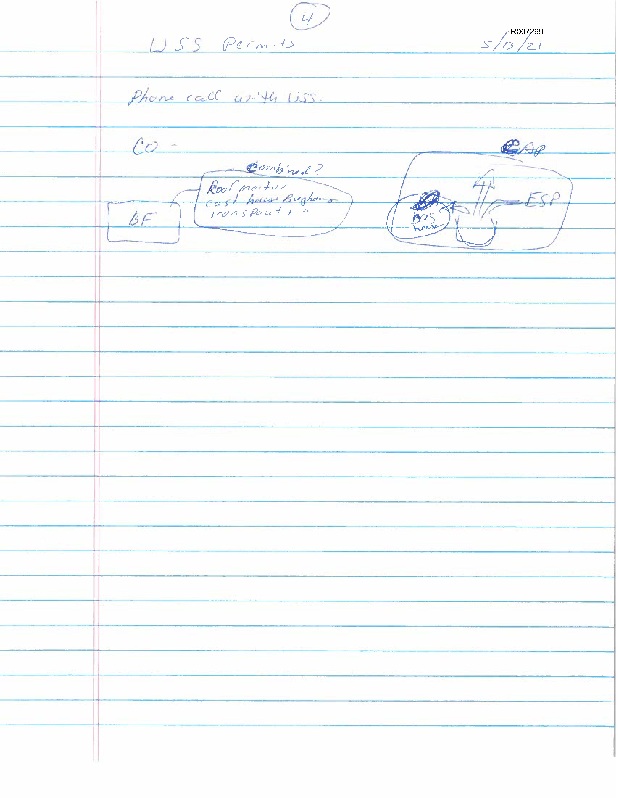 4
R007298
USS Permits
5/13/21
Phone call with USS.
CO -
Combined?
Roof monitor
cast house Baghouse
BF
ESP
house